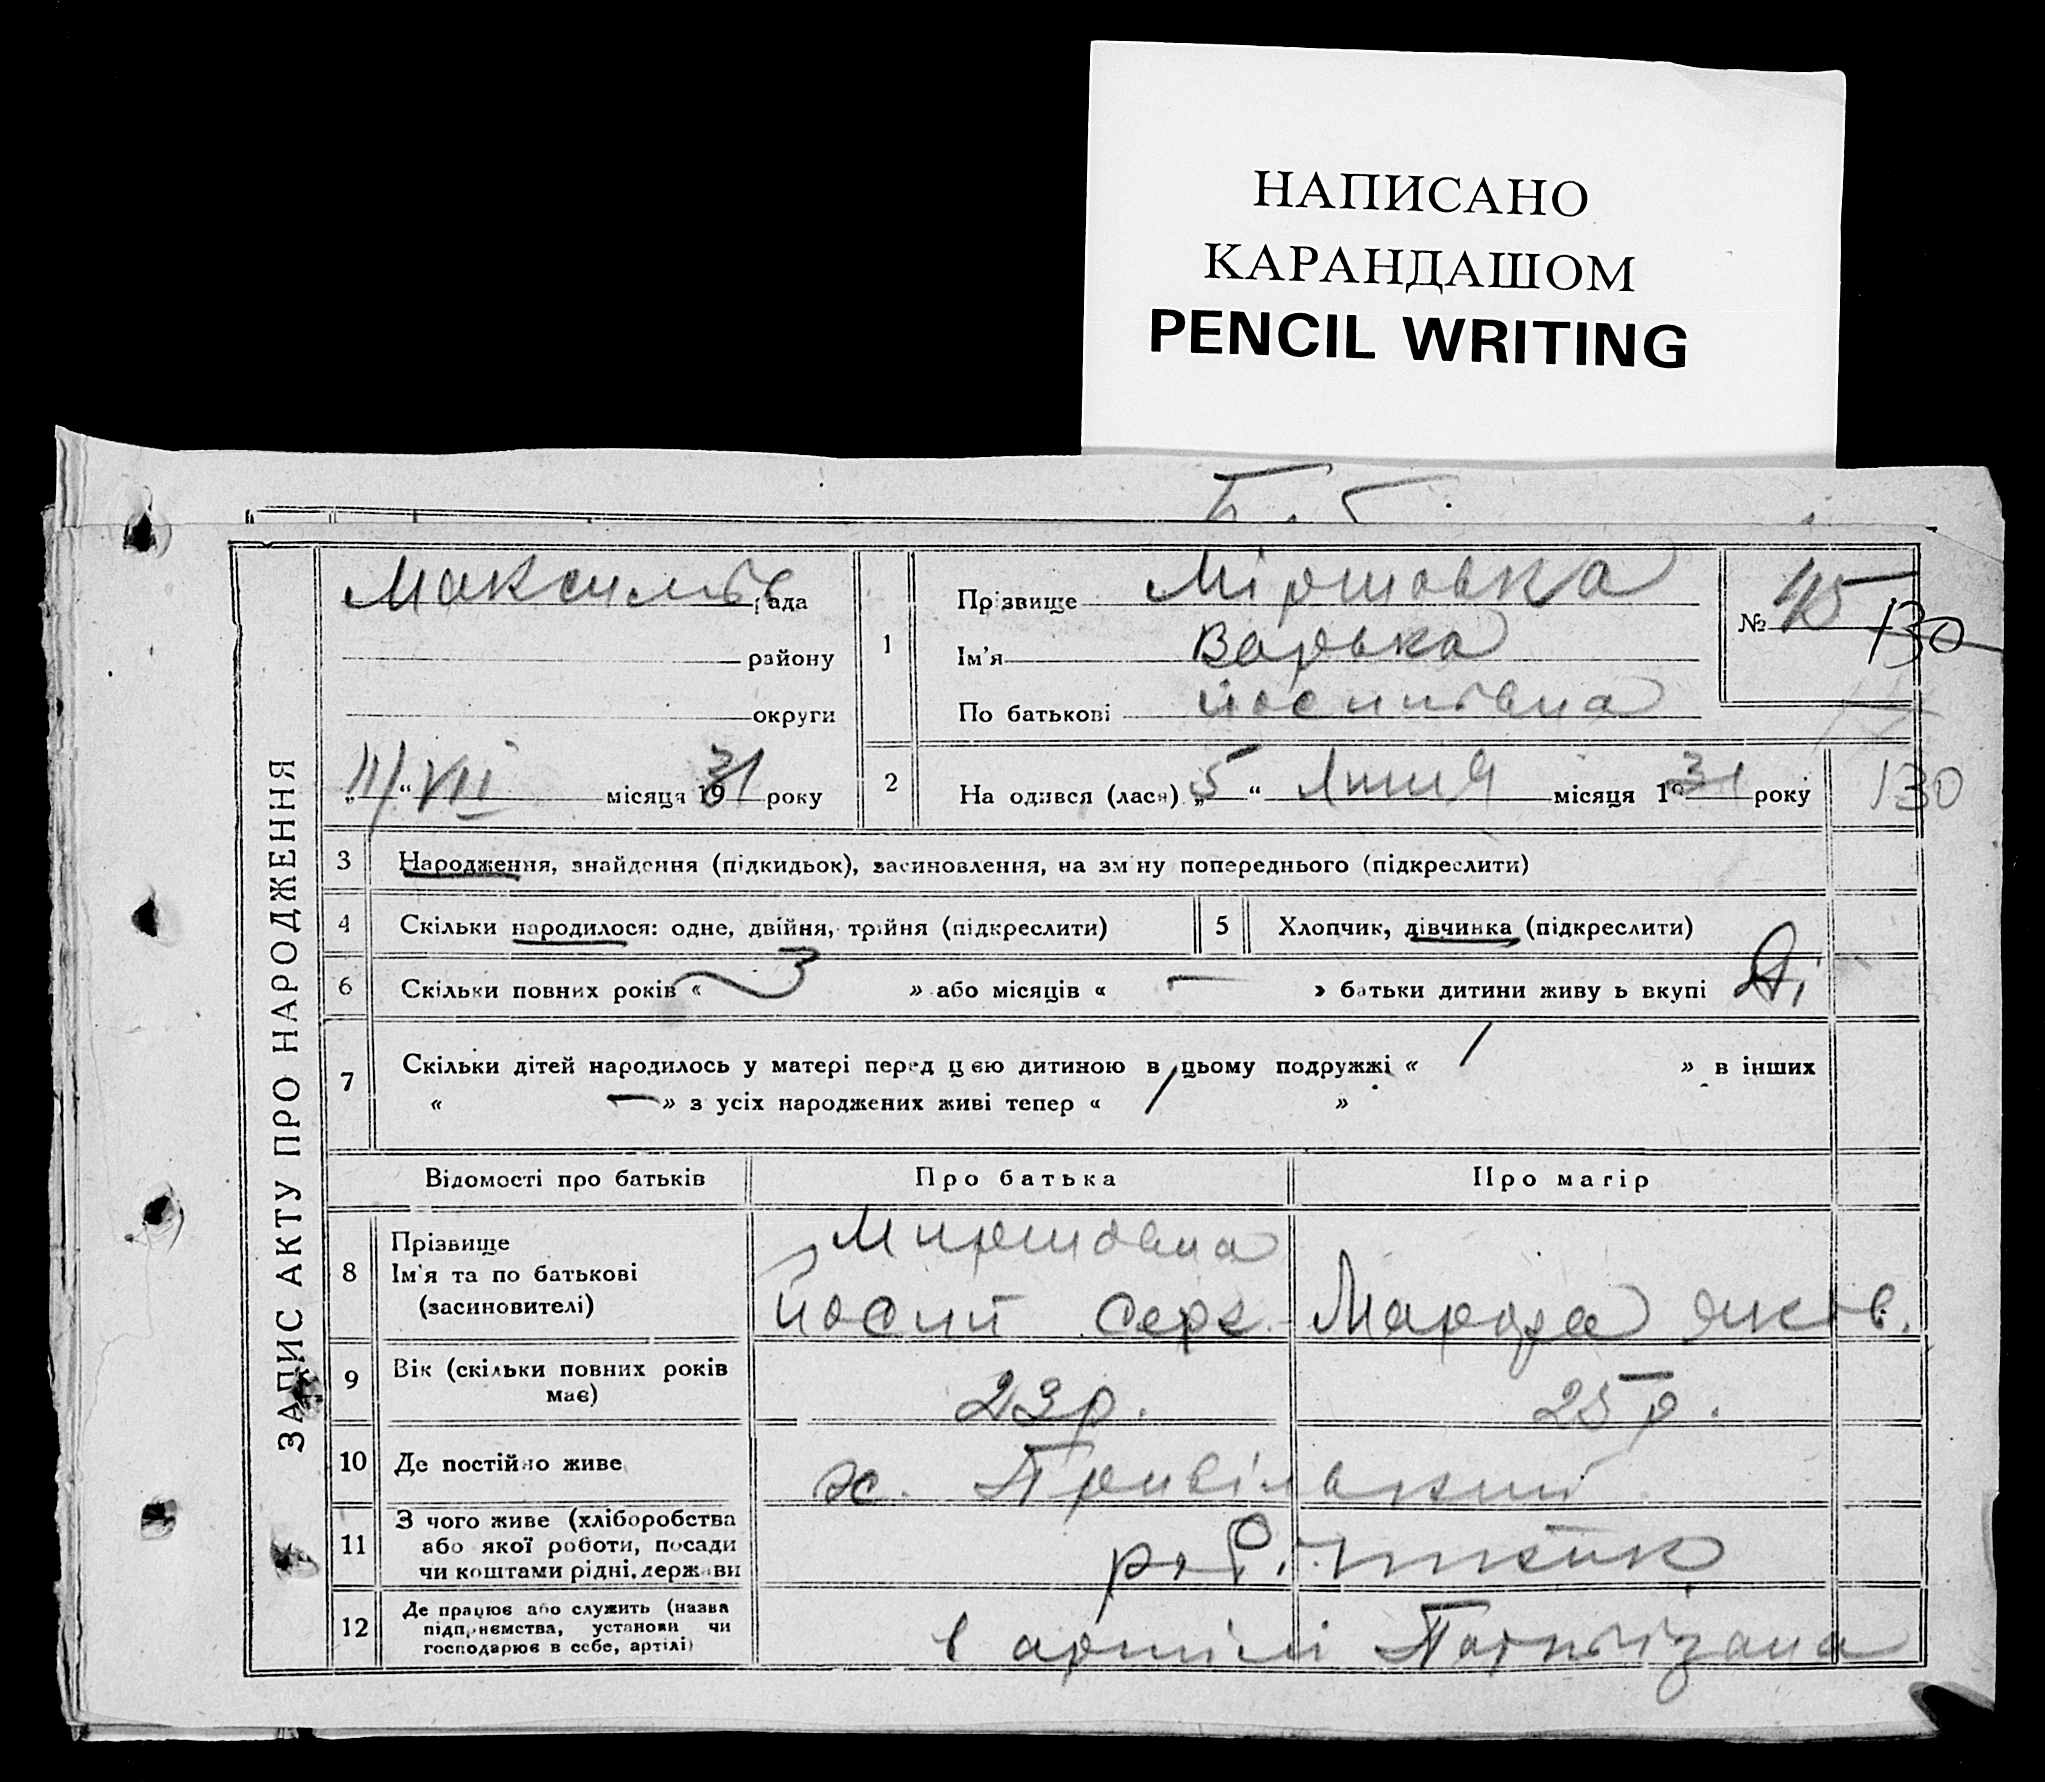 НАПИСАНО
КАРАНДАШОМ
PENCIL WRITING
ЗАПИС АКТУ ПРО НАРОДЖЕННЯ
Максимів рада
району
округи
„11/“ VII місяця 1931 року
1
Прізвище Міршовка
Ім'я Варька
По батькові Йосипівна
№ 45
130
2 На одився (лася) „5“ Липня місяця 1931 року
130
3 Народження, знайдення (підкидьок), засиновлення, на зміну попереднього (підкреслити)
4 Скільки народилося: одне, двійня, трійня (підкреслити) 5 Хлопчик, дівчинка (підкреслити)
6 Скільки повних років « 3 » або місяців « — » батьки дитини живу ь вкупі
7 Скільки дітей народилось у матері перед цею дитиною в цьому подружжі « 1 » в інших
« — » з усіх народжених живі тепер « 1 »
Відомості про батьків Про батька Про матір
8 Прізвище
Ім'я та по батькові
(засиновителі)
Йосип Серг. Марфа Яков.
9 Вік (скільки повних років
має)
23 р. 25 р.
10 Де постійно живе х. Привільський
11 З чого живе (хліборобства
або якої роботи, посади
чи коштами рідні, держави
12 Де працює або служить (назва
підприємства, установи чи
господарює в себе, артілі)
в артілі Партизана